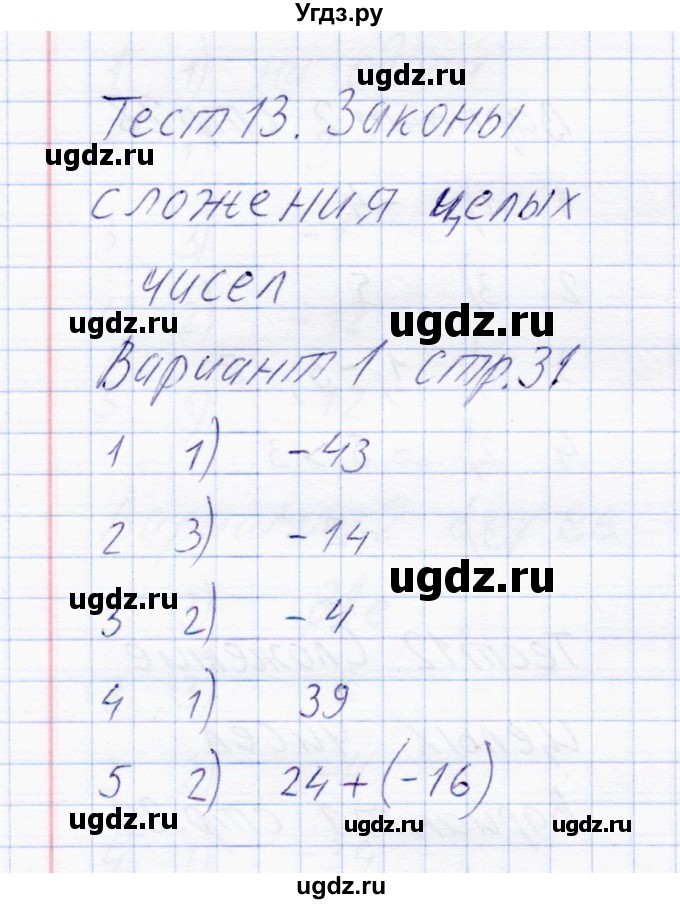 Угдз.ру
ugdz.ru
Тест 13. Законы
ugdz.ru
сложения целых
чисел
ugdz.ru
ugdz.ru
Вариант 1 стр. 31
1 1) -43
2 3) -14
ugdz.ru
ugdz.ru
3 2) -4
4 1) 39
5 2) 24+(-16)
ugdz.ru
ugdz.ru
ugdz.ru
ugdz.ru